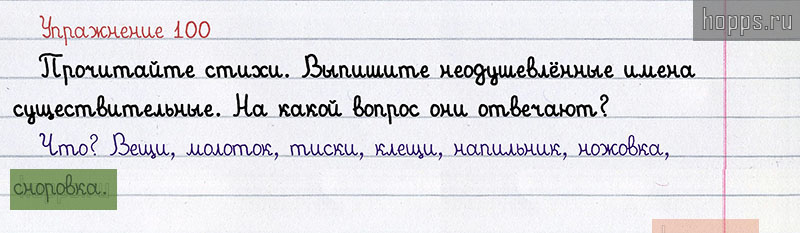 Упражнение 100
hopps.ru
Прочитайте стихи. Выпишите неодушевлённые имена
существительные. На какой вопрос они отвечают?
Что? Вещи, молоток, тиски, клещи, напильник, ножовка,
сноровка.